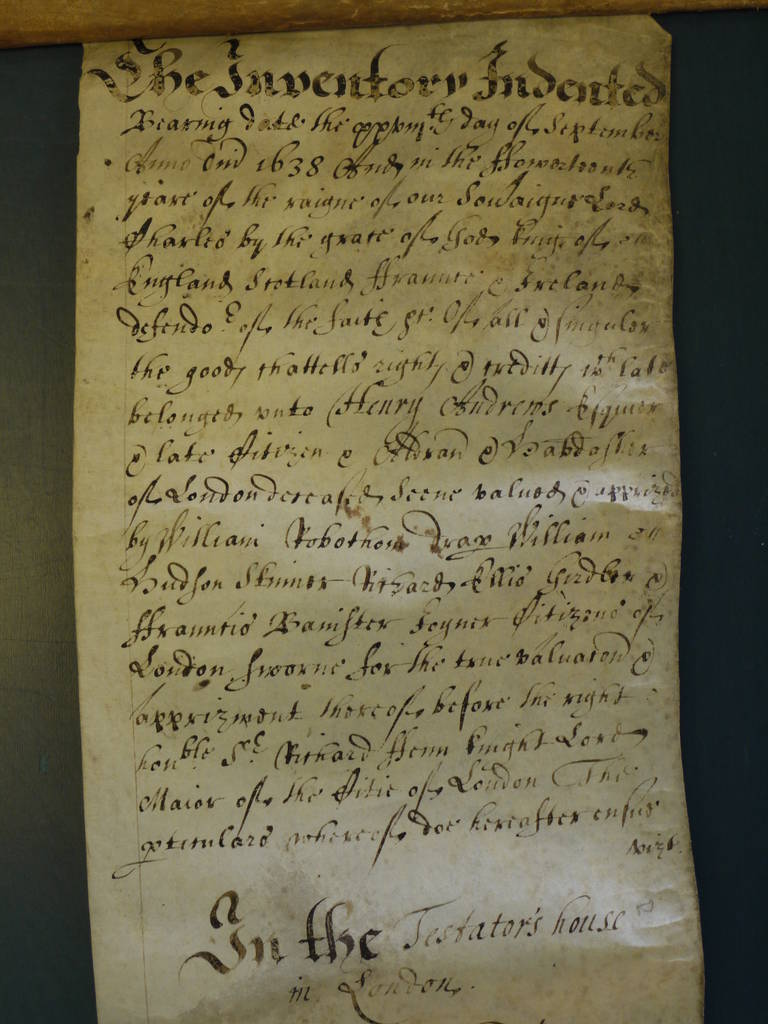 The Inventory Indented
Bearing date the xxviiith day of September
Anno Dni 1638 And in the ffowerteenth
yeare of the raigne of our Soveraigne Lord
Charles by the grace of God King of
England Scotland ffraunce & Ireland
defendor of the faith &c. Of all & singuler
the goods chattells rights & creditts wch late
belonged unto Henry Andrewes Esquier
& late Citizen & Aldran & Haberdasher
of London deceased Seene valued & apprized
by William Robotham Drap William
Hudson Skinner Richard Ellis Girdler &
ffrauncis Banister Joyner Citizens of
London sworne for the true valuacon &
apprizment thereof before the right
honble Sr Richard ffenn Knight Lord
Maior of the Citie of London The
pticulars whereof doe hereafter ensue
vizt.
In the Testator's house
in London.